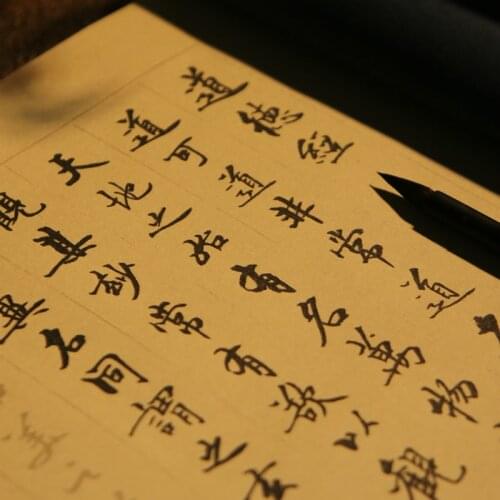 道德經
道可道非常道
天地之始有名萬物
觀其妙常有欲以觀
異名同謂之玄